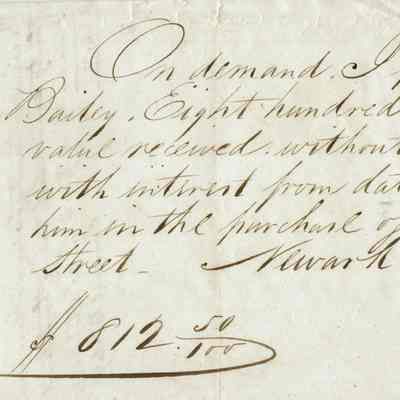 On demand. I
Bailey. Eight hundred
value received without
with interest from dat
him in the purchase of
Street - Newark
$ 812 50/100